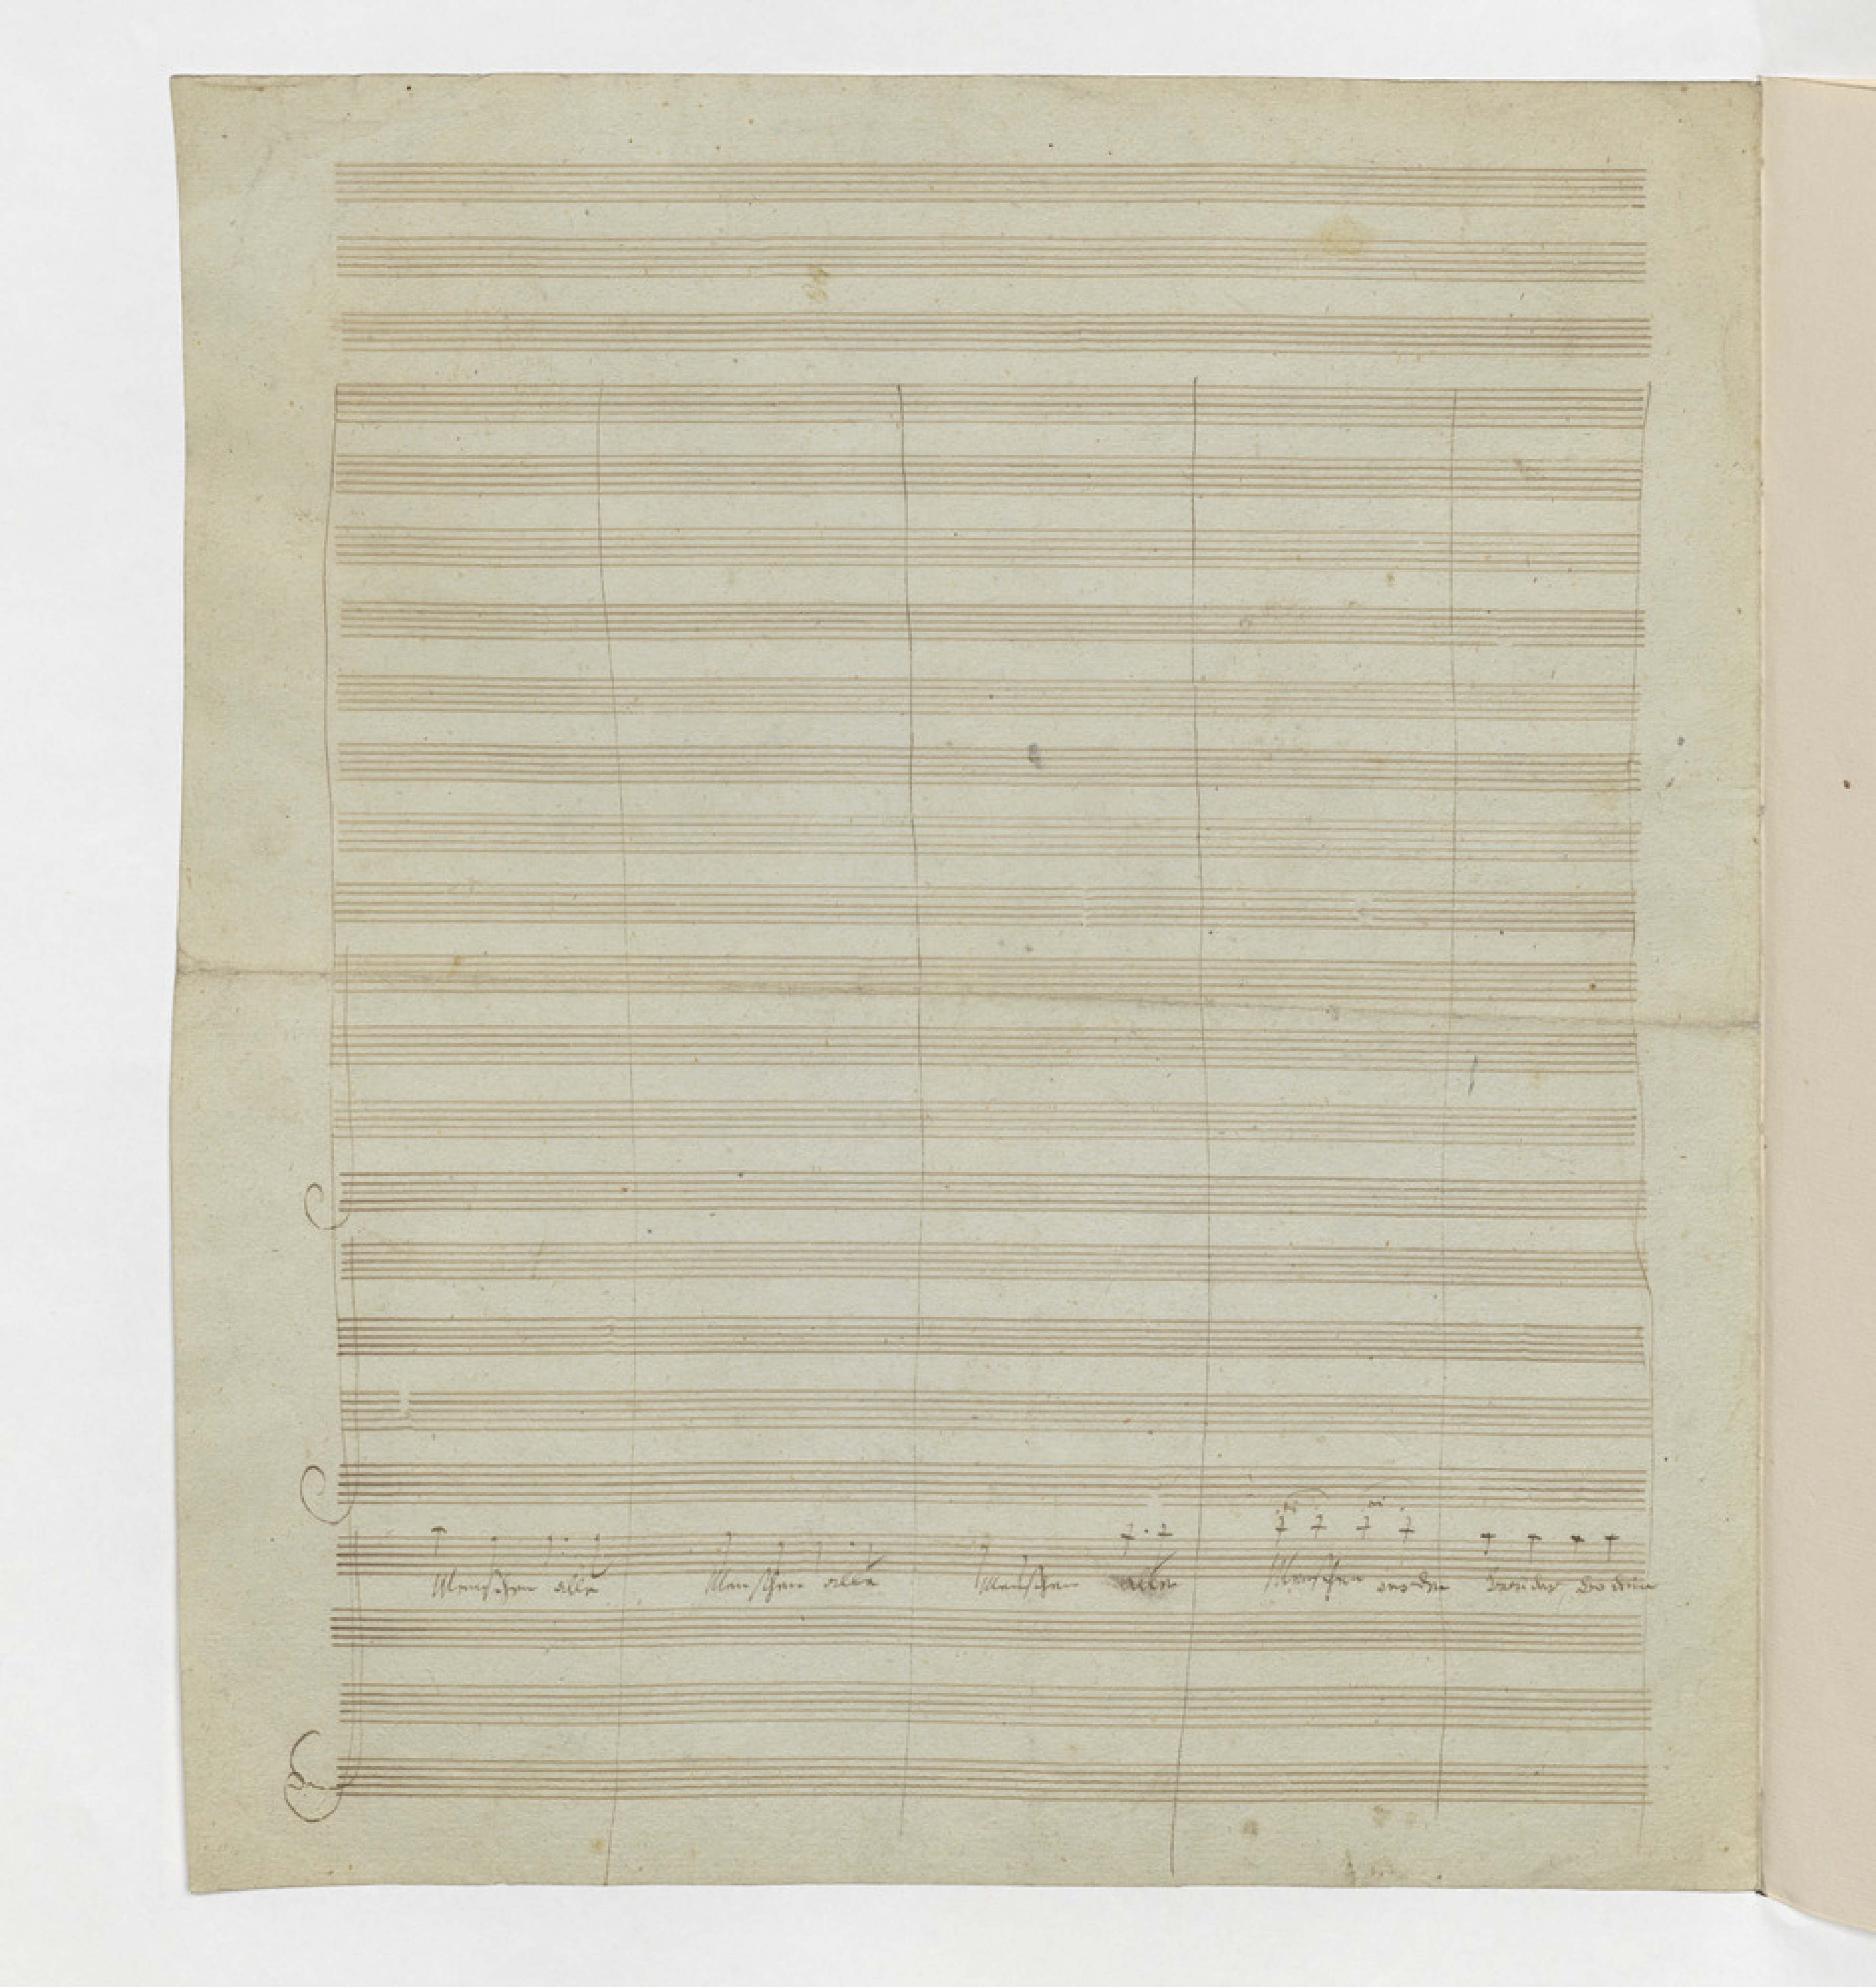 Menschen alle Menschen alle Menschen alle Menschen werden Brüder